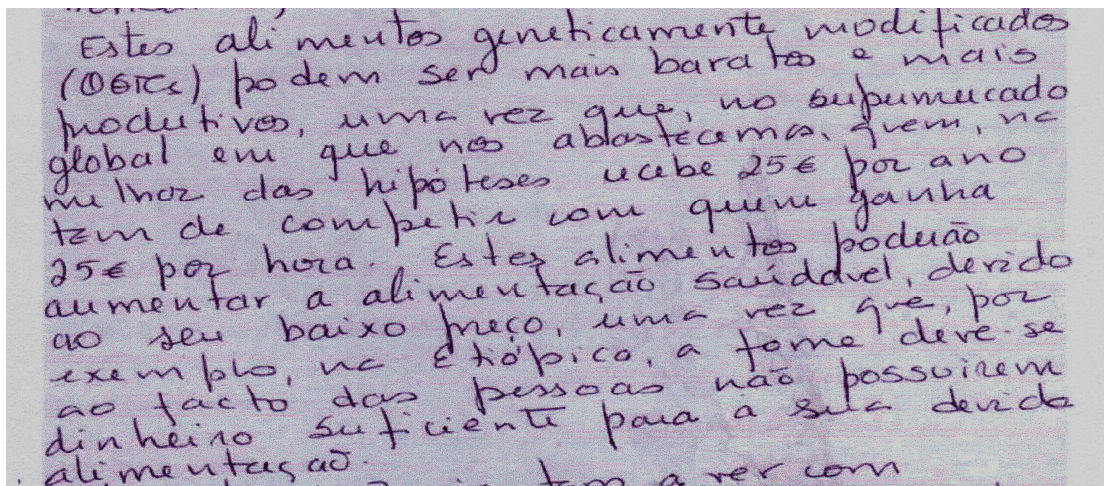 Estes alimentos geneticamente modificados
(OGTCs) podem ser mais baratos e mais
produtivos, uma vez que, no supermercado
global em que nos abastecemos, quem, na
melhor das hipóteses recebe 25€ por ano
tem de competir com quem ganha
25€ por hora. Estes alimentos poderão
aumentar a alimentação saudável, devido
ao seu baixo preço, uma vez que, por
exemplo, na Etiópica, a fome deve-se
ao facto das pessoas não possuirem
dinheiro suficiente para a sua devida
alimentação.
tem a ver com